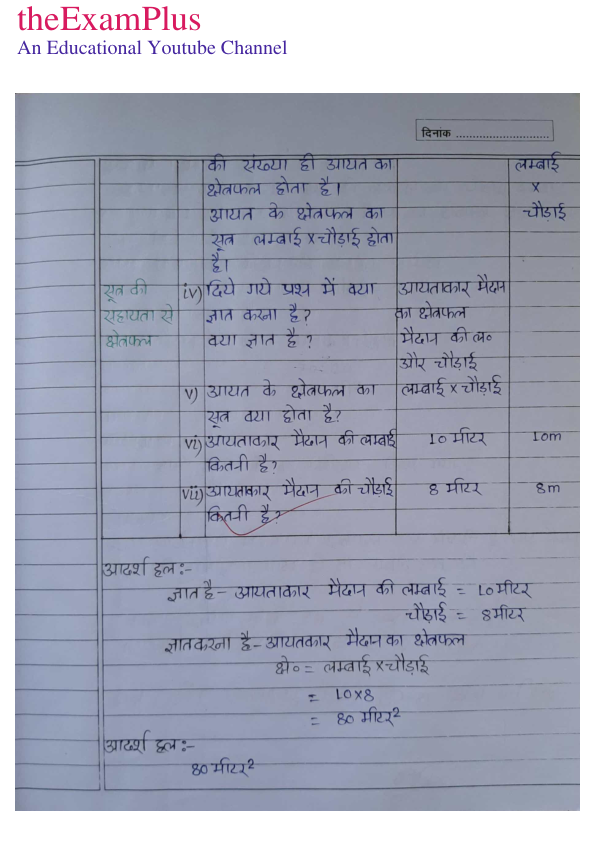 theExamPlus
An Educational Youtube Channel
दिनांक ............................
की संख्या ही आयत का
क्षेत्रफल होता है।
आयत के क्षेत्रफल का
सूत्र लम्बाई × चौड़ाई होता
है।
लम्बाई
×
चौड़ाई
सूत्र की
सहायता से
क्षेत्रफल
iv) दिये गये प्रश्न में क्या
ज्ञात करना है?
क्या ज्ञात है ?
आयताकार मैदान
का क्षेत्रफल
मैदान की ल०
और चौड़ाई
v) आयत के क्षेत्रफल का
सूत्र क्या होता है?
लम्बाई × चौड़ाई
vi) आयताकार मैदान की लम्बाई
कितनी है?
10 मीटर
10m
vii) आयताकार मैदान की चौड़ाई
कितनी है?
8 मीटर
8m
आदर्श हल:-
ज्ञात है - आयताकार मैदान की लम्बाई = 10 मीटर
चौड़ाई = 8 मीटर
ज्ञात करना है - आयतकार मैदान का क्षेत्रफल
क्षे० = लम्बाई × चौड़ाई
= 10×8
= 80 मीटर²
आदर्श हल:-
80 मीटर²